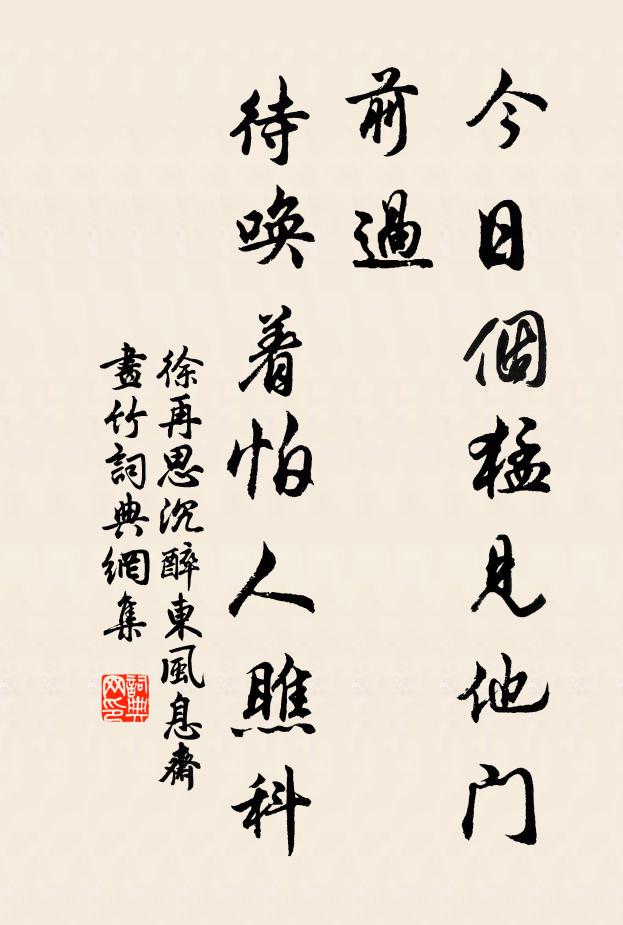 今日個猛見他门
前過
待唤着怕人瞧科
徐再思沉醉東風息齋
畫竹詞典網集
詞典
网印